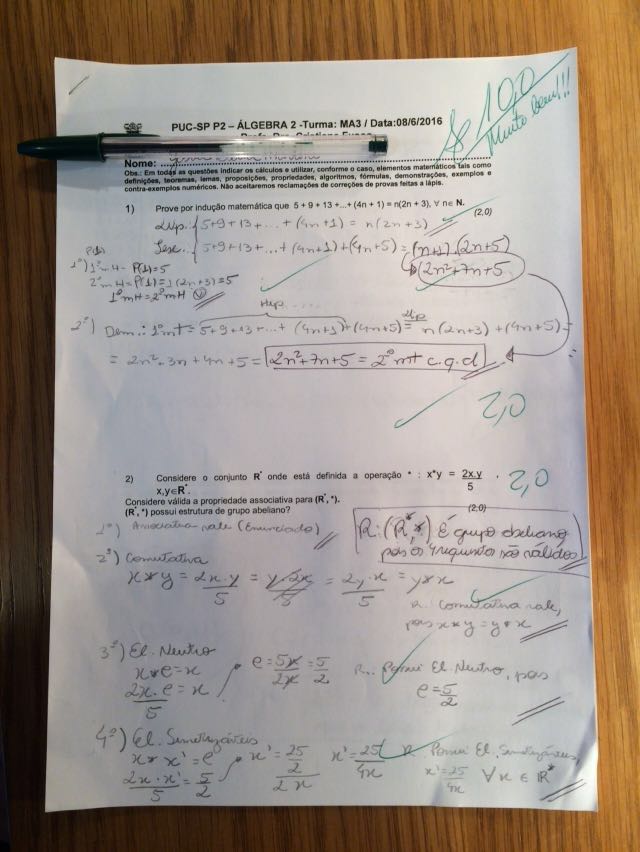 10,0
Muito bem!!!
PUC-SP P2 – ÁLGEBRA 2 -Turma: MA3 / Data:08/6/2016
Nome:
Obs.: Em todas as questões indicar os cálculos e utilizar, conforme o caso, elementos matemáticos tais como
definições, teoremas, lemas, proposições, propriedades, algoritmos, fórmulas, demonstrações, exemplos e
contra-exemplos numéricos. Não aceitaremos reclamações de correções de provas feitas a lápis.
1) Prove por indução matemática que 5 + 9 + 13 +...+ (4n + 1) = n(2n + 3), ∀ n∈ N.
(2,0)
Hip. { 5+9+13+...+(4n+1) = n(2n+3)
Tese { 5+9+13+...+(4n+1)+(4n+5) = (n+1).(2n+5)
(2n²+7n+5
P(1)
1º) 1º mH = P(1)=5
2º mH = P(1)=1(2n+3)=5
1º mH = 2º mH (V)
Hip.
2º) Dem.: 1º mT = 5+9+13+...+(4n+1)+(4n+5) = n(2n+3)+(4n+5)=
Hip
= 2n²+3n+4n+5 = 2n²+7n+5 = 2º mT c.q.d
2,0
2) Considere o conjunto R* onde está definida a operação * : x*y = 2x.y / 5 ,
2,0
x,y∈R*.
Considere válida a propriedade associativa para (R*, *).
(R*, *) possui estrutura de grupo abeliano?
(2,0)
1º) Associativa vale (Enunciado)
R: (R*, *) É grupo abeliano
pois os 4 requisitos são válidos
2º) Comutativa
x*y = 2x.y/5 = y.2x/5 = 2y.x/5 = y*x
R: Comutativa vale,
pois x*y = y*x
3º) El. Neutro
x*e=x
2x.e/5 = x
e = 5x/2x = 5/2
R: Possui El. Neutro, pois
e = 5/2
4º) El. Simetrizáveis
x * x' = e
2x.x'/5 = 5/2
x' = 25/2 / 2x
x' = 25/4x
R: Possui El. Simetrizáveis,
x' = 25/4x ∀ x ∈ R*